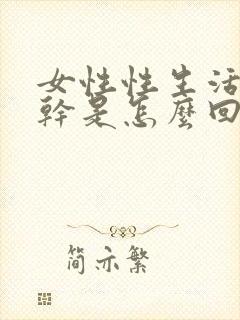 女性性生活
幹是怎麼回
简亦繁